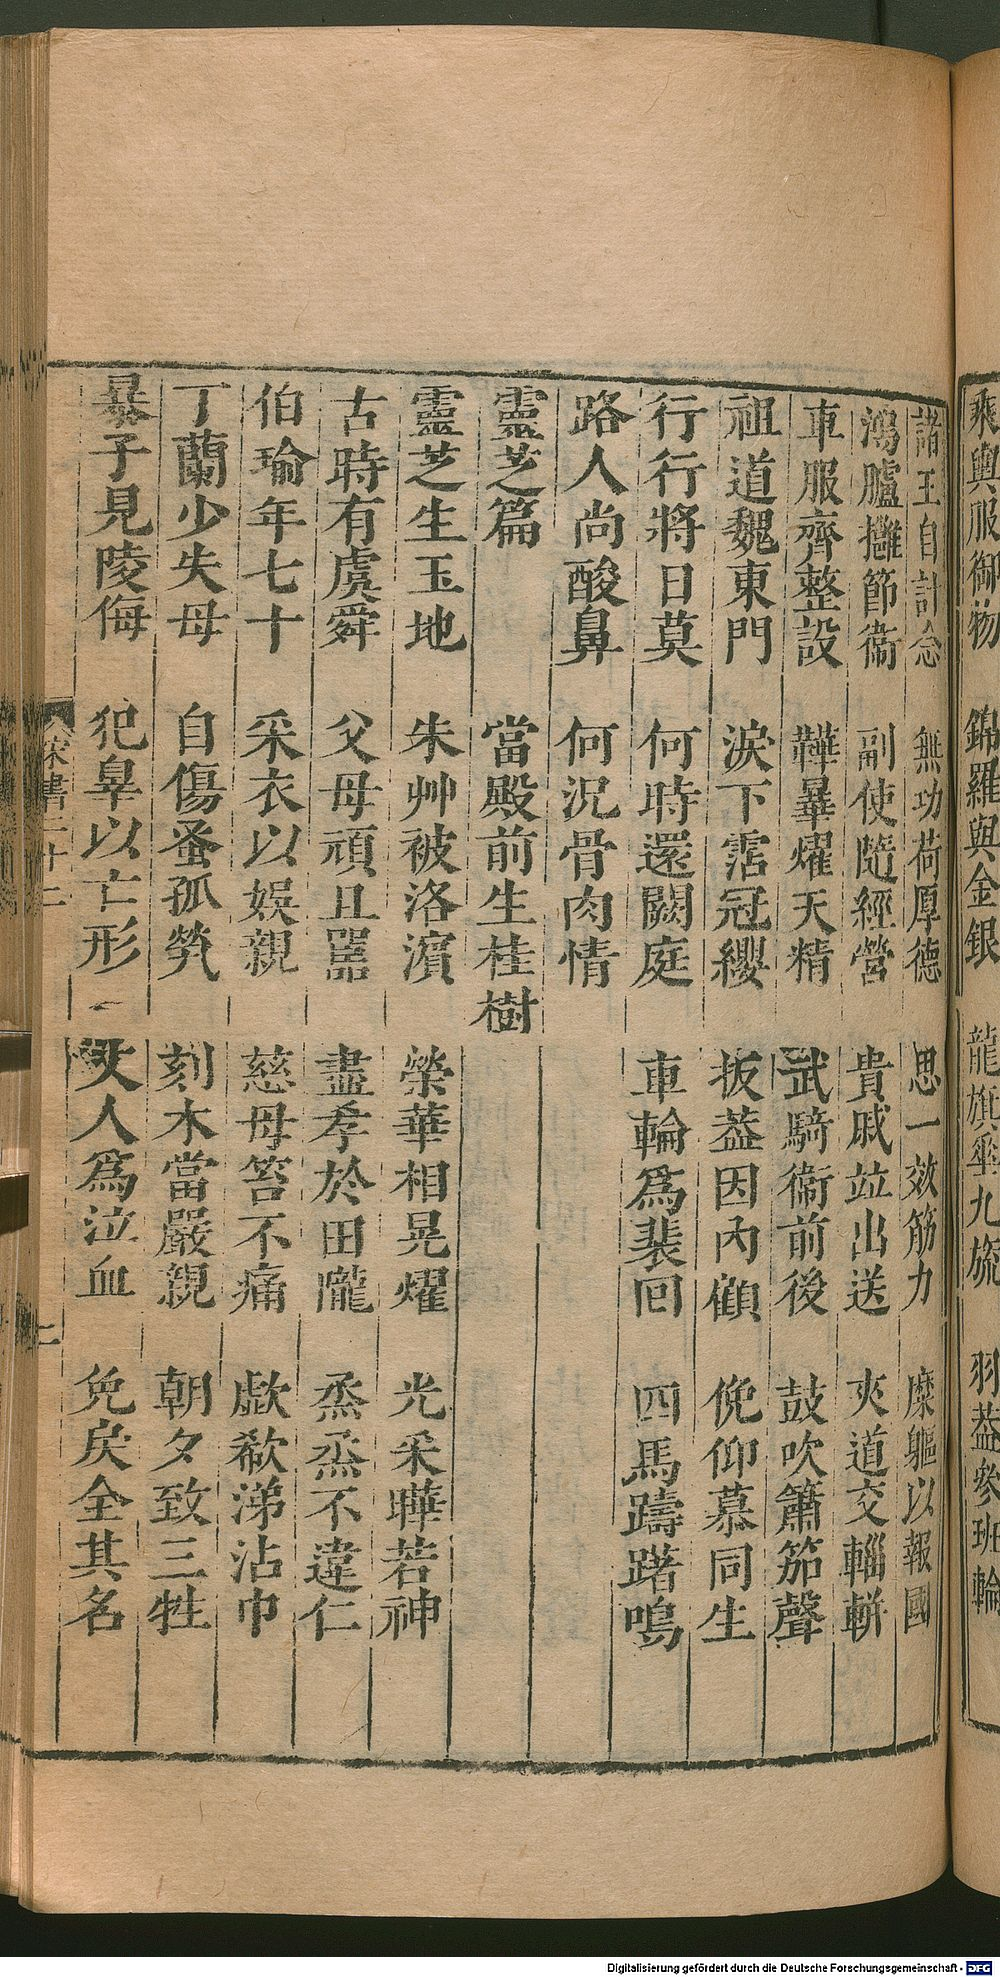 乘輿服御物　錦羅與金銀　龍旂垂九旒　羽葢參班輪
諸王自計念　無功荷厚德　思一效筋力　糜軀以報國
鴻臚擁節衞　副使隨經營　貴戚竝出送　夾道交輜軿
車服齊整設　韡曅燿天精　武騎衞前後　鼓吹簫笳聲
祖道魏東門　淚下霑冠纓　扳葢因內顧　俛仰慕同生
行行將日莫　何時還闕庭　車輪爲裴回　四馬躊躇鳴
路人尚酸鼻　何況骨肉情
靈芝篇　當殿前生桂樹
靈芝生玉地　朱艸被洛濱　榮華相晃燿　光采曄若神
古時有虞舜　父母頑且嚚　盡孝於田隴　烝烝不違仁
伯瑜年七十　采衣以娛親　慈母笞不痛　歔欷涕沾巾
丁蘭少失母　自傷蚤孤煢　刻木當嚴親　朝夕致三牲
暴子見陵侮　犯辠以亡形　丈人爲泣血　免戾全其名
宋書二十二
Digitalisierung gefördert durch die Deutsche Forschungsgemeinschaft - DFG